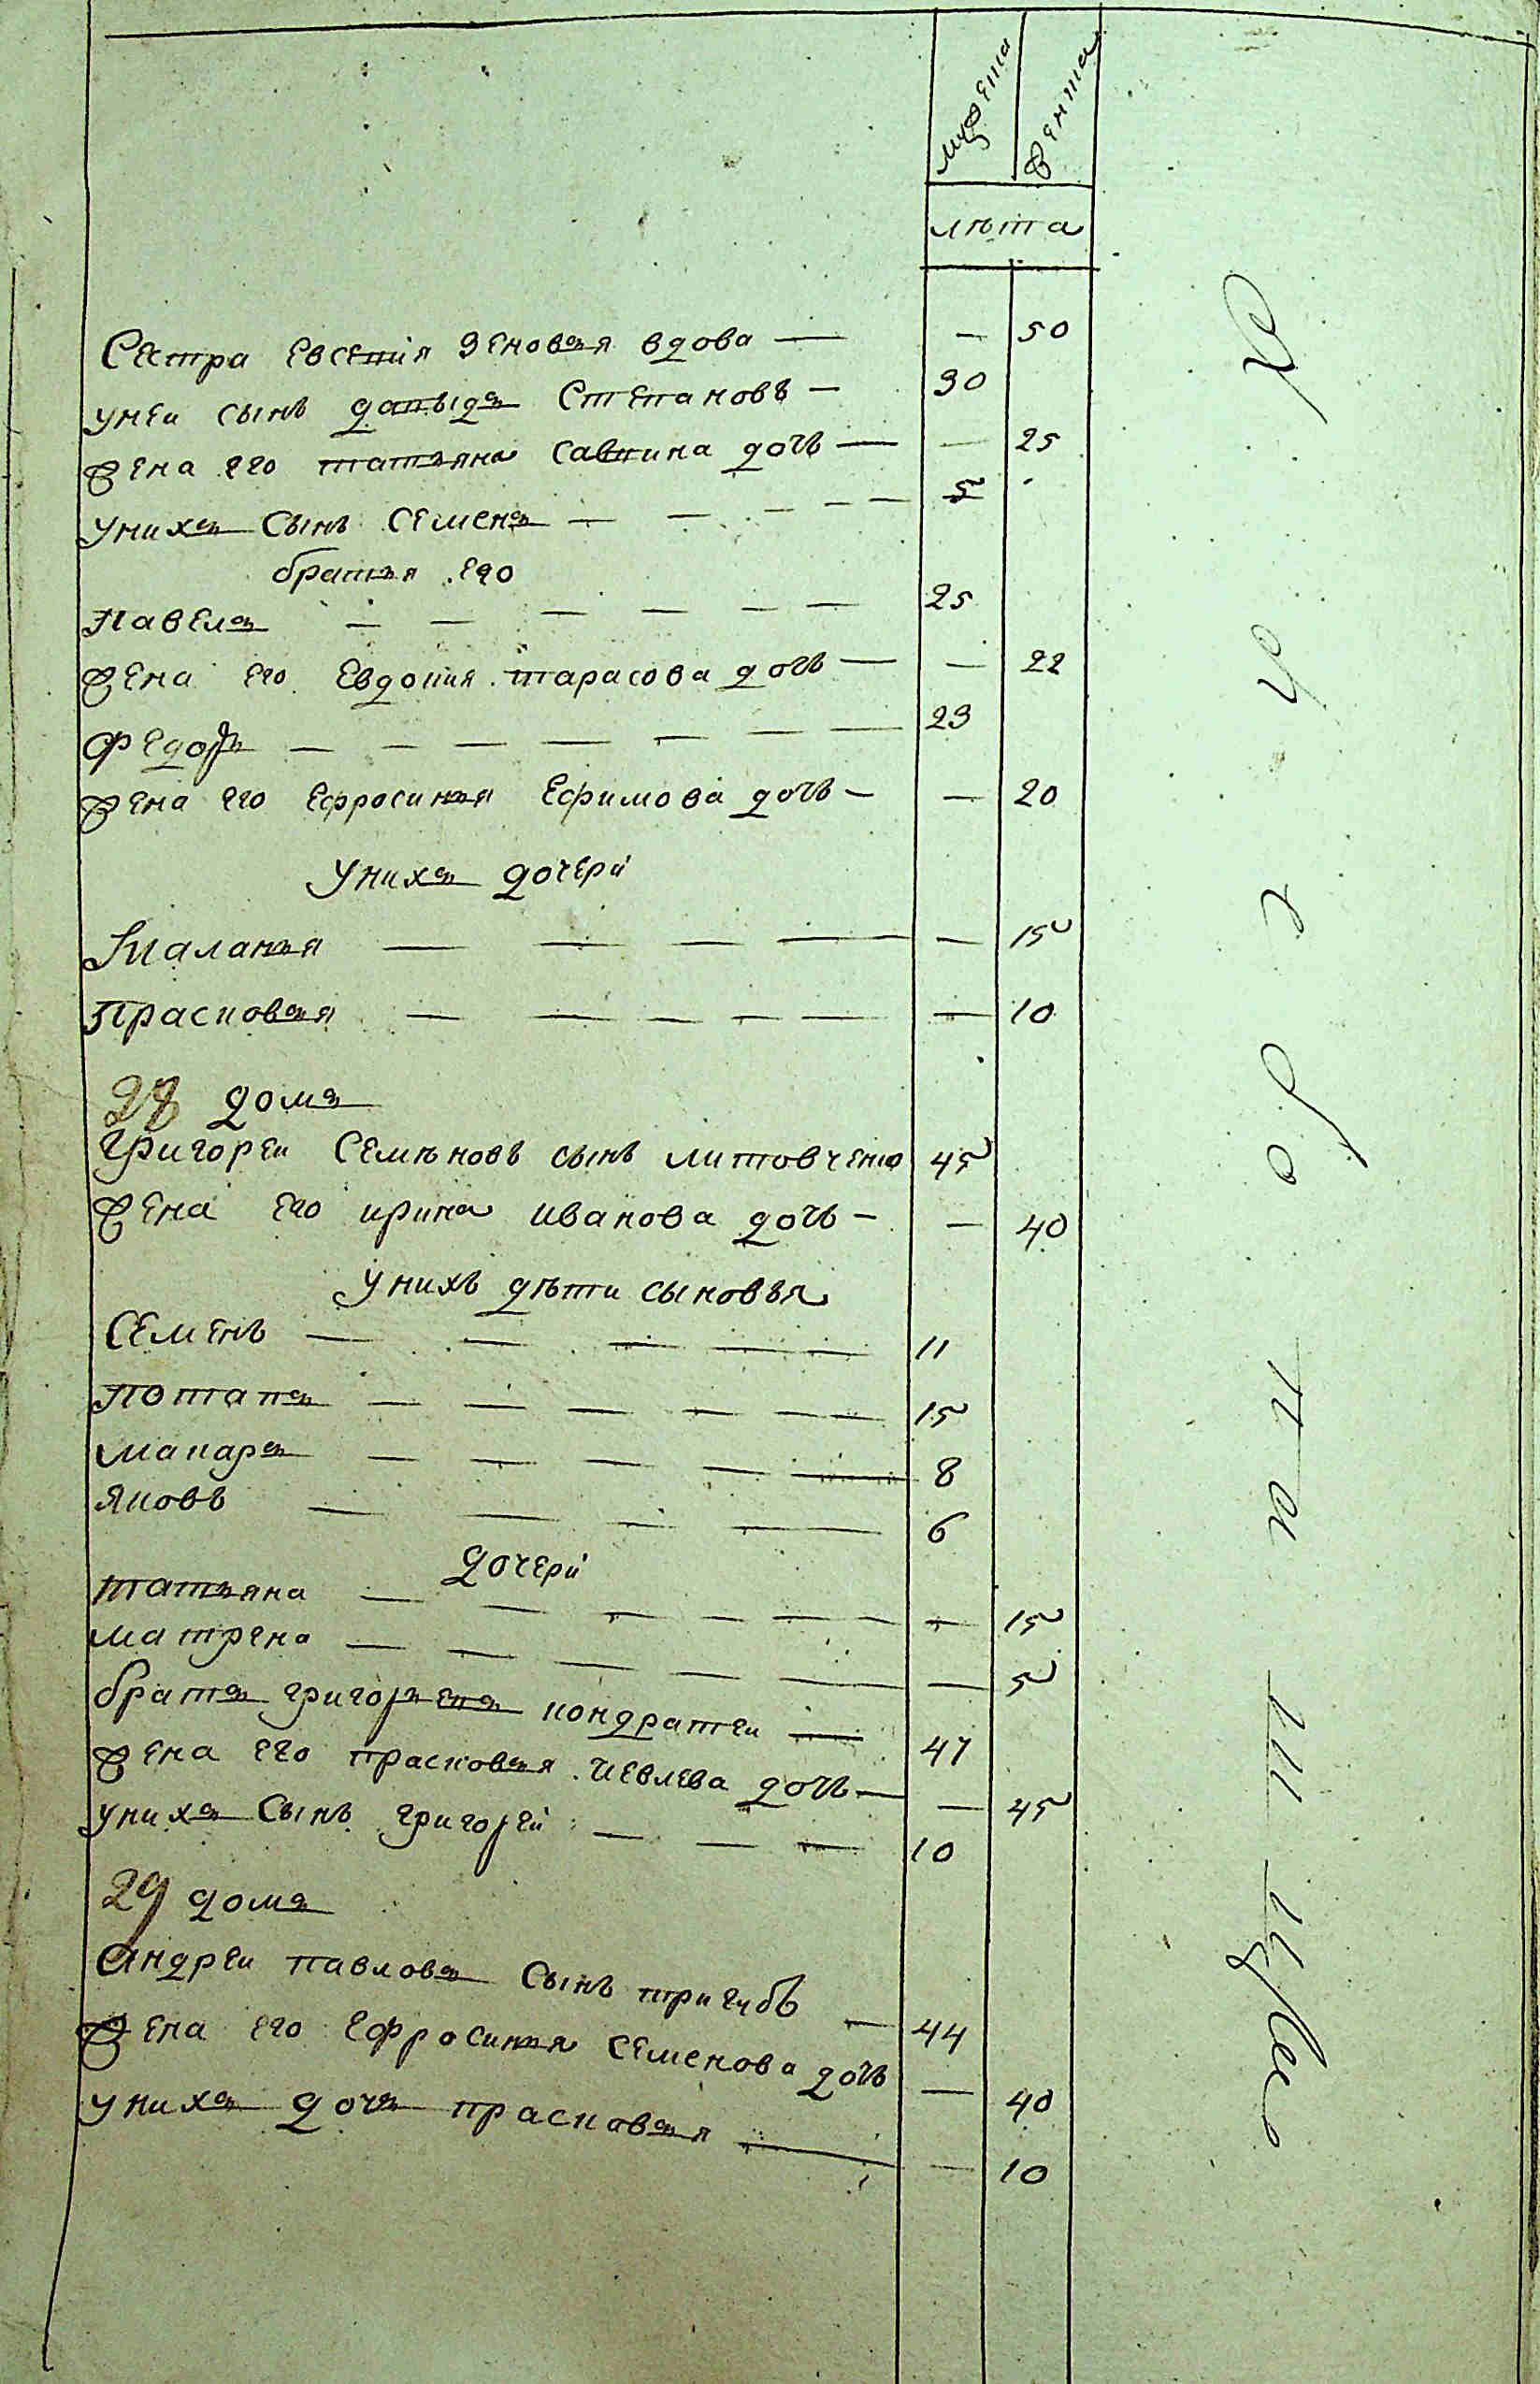 мужеска женска
лѣта
Сестра Евсевия Зеновья вдова — — 50
унеи сынъ давыдъ Степановъ — 30
жена его татьяна Саввина дочь — — 25
унихъ сынъ Семенъ — — — — — 5
братья его
Павелъ — — — — — — 25
жена его Евдокия тарасова дочь — — 22
Федоръ — — — — — — — 23
жена его Ефросинья Ефимова дочь — — 20
Унихъ дочери
Маланья — — — — — 15
Прасковья — — — — — — 10
28 домъ
Григореи Семѣновъ сынъ литовченко 45
жена его ирина иванова дочь — — 40
Унихъ дѣти сыновья
Семенъ — — — — — 11
Потапъ — — — — — — 15
макаръ — — — — — 8
яковъ — — — — — 6
дочери
татьяна — — — — — — — 15
матрена — — — — — — — 5
братъ григорьевъ кондратеи — 47
жена его прасковья иевлева дочь — — 45
унихъ Сынъ григореи — — — 10
29 домъ
Андреи павловъ Сынъ пригубъ — 44
жена его Ефросинья Семенова дочь — 40
унихъ дочь прасковья — — 10